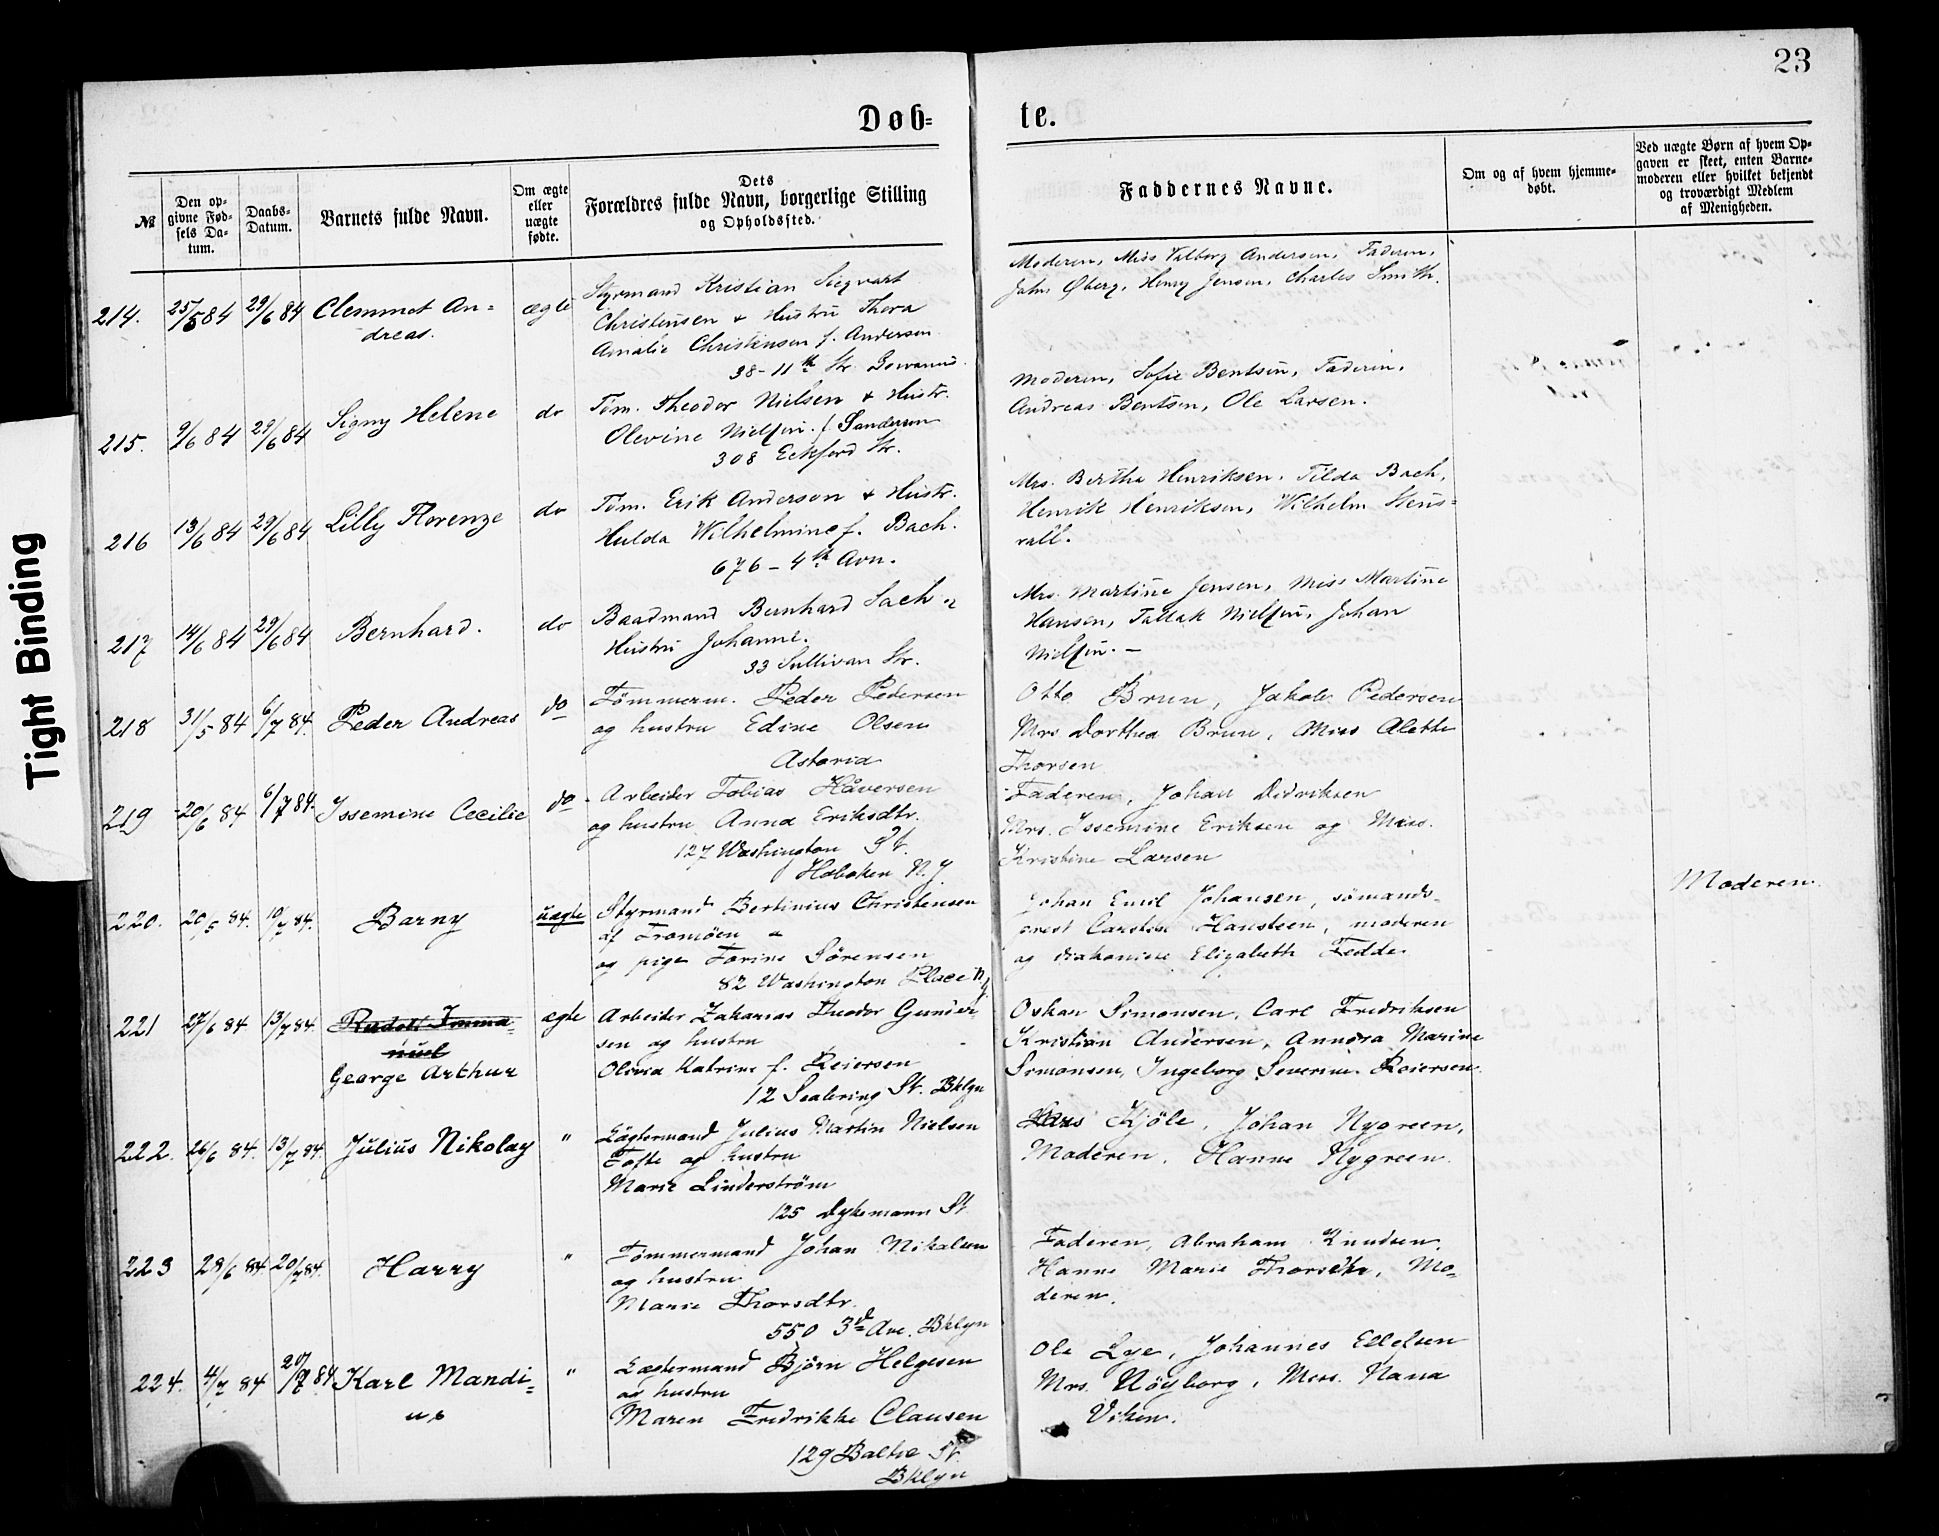 23
Døb=
te.
№
Den op-
givne Fød-
sels Da-
tum.
Daabs-
Datum.
Barnets fulde Navn.
Om ægte
eller
uægte
fødte.
Dets
Forældres fulde Navn, borgerlige Stilling
og Opholdssted.
Faddernes Navne.
Om og af hvem hjemme-
døbt.
Ved uægte Børn af hvem Op-
gaven er skeet, enten Barne-
moderen eller hvilket bekjendt
og troværdigt Medlem
af Menigheden.
214. 25/5 84 29/6 84 Clemmet An=
dreas.
ægte
Styrmand Kristian Sigvart
Christensen & Hustru Thora
Amalie Christensen f. Andersen
38-11th Str.
Moderen, Miss Valborg Andersen, Faderen,
John Øberg, Henry Jensen, Charles Smith.
215. 9/6 84 29/6 84 Signy Helene do
Tøm. Theodor Nielsen & Hustr.
Olevine Nielsen f. Sandersen
308 Eckford Str.
Moderen, Sofie Bentsen, Faderen,
Andreas Bentsen, Ole Larsen.
216 13/6 84 29/6 84 Lilly Florenze do
Tøm. Erik Anderson & Hustr.
Hulda Wilhelmine f. Bach.
676-4th Avn.
Mrs. Bertha Henriksen, Tilda Bach,
Henrik Henriksen, Wilhelm Stens=
rall.
217 14/6 84 29/6 84 Bernhard. do
Baadmand Bernhard Sach &
Hustru Johanne.
33 Sullivan Str.
Mrs. Martine Jensen, Miss Martine
Hansen, Tallak Nielsen, Johan
Nielsen. —
218 31/5 84 6/7 84. Peder Andreas do
Tømmerm. Peder Pedersen
og hustru Edine Olsen
Astoria
Otto Brun, Jakob Pedersen
Mrs Dorthea Brun, Miss Alette
Thorsen
219 20/6 84 6/7 84. Issemine Cecilie do
Arbeider Tobias Håversen
og hustru Anna Eriksdtr.
127 Washington St.
Hoboken N.J.
Faderen, Johan Didriksen
Mrs. Issemine Eriksen og Miss.
Kristine Larsen
220. 20/5 84. 10/7 84. Barny uægte
Styrmand Bertinius Christensen
af Tromöen
og pige Torine Sörensen
82 Washington Place N.Y.
Johan Emil Johansen, sömands-
prest Carsten Hansteen, moderen
og diakonisse Elizabeth Fedde.
Moderen.
221 27/6 84 13/7 84. Rudolf Imma-
nuel
George Arthur
ægte
Arbeider Zakarias Theodor Gunder-
sen og hustru
Olivia Katrine f. Reiersen
12 Seabring St. Bklyn
Oskar Simonsen, Carl Fredriksen
Kristian Andersen, Annora Marine
Simonsen, Ingeborg Severine Reiersen.
222. 26/6 84. 13/7 84. Julius Nikolay "
Lægtermand Julius Martin Nielsen
Tofte og hustru
Marie Linderström
125 Dykemann St
Lars Kjöle, Johan Nygreen,
Moderen, Hanne Nygreen.
223 28/6 84 20/7 84. Harry "
Tømmermand Johan Nikolsen
og hustru
Marie Thorsdtr.
550 3d Ave. Bklyn
Faderen, Abraham Knudsen,
Hanne Marie, Mo-
deren.
224. 4/7 84 20/7 84 Karl Mandi=
us
"
Lægtermand Bjørn Helgesen
og hustru
Maren Fredrikke Clausen
129 Baltic St.
Bklyn
Ole Lye, Johannes Ellefsen
Mrs. Nöyborg, Miss. Nana
Viken.
Tight Binding